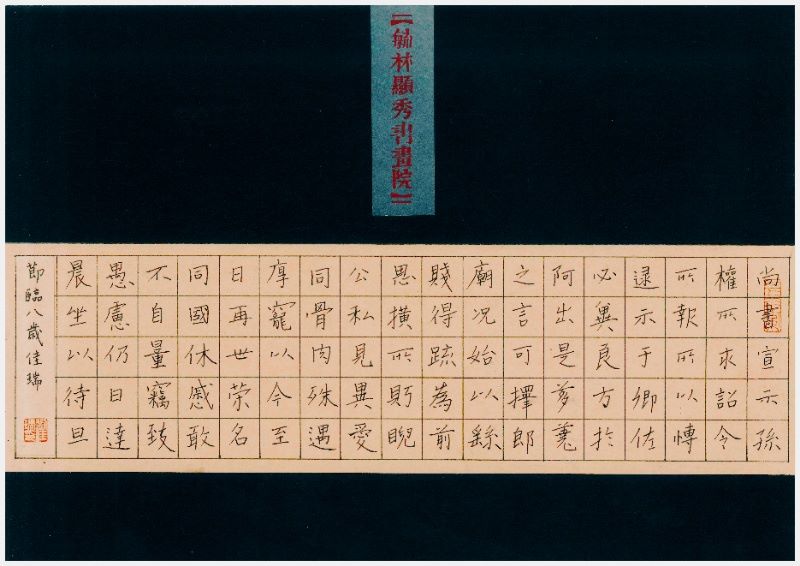 【翰林顯秀書畫院】
尚書宣示孫
權所求詔令
所報所以愽
逮示于卿佐
必兾良方於
阿出是芻蕘
之言可擇郎
廟况始以繇
賤得疏為前
恩橫所眄睨
公私見異愛
同骨肉殊遇
厚寵以今至
日再世荣名
同國休慼敢
不自量竊致
愚慮仍日達
晨坐以待旦
節臨八歲佳瑞